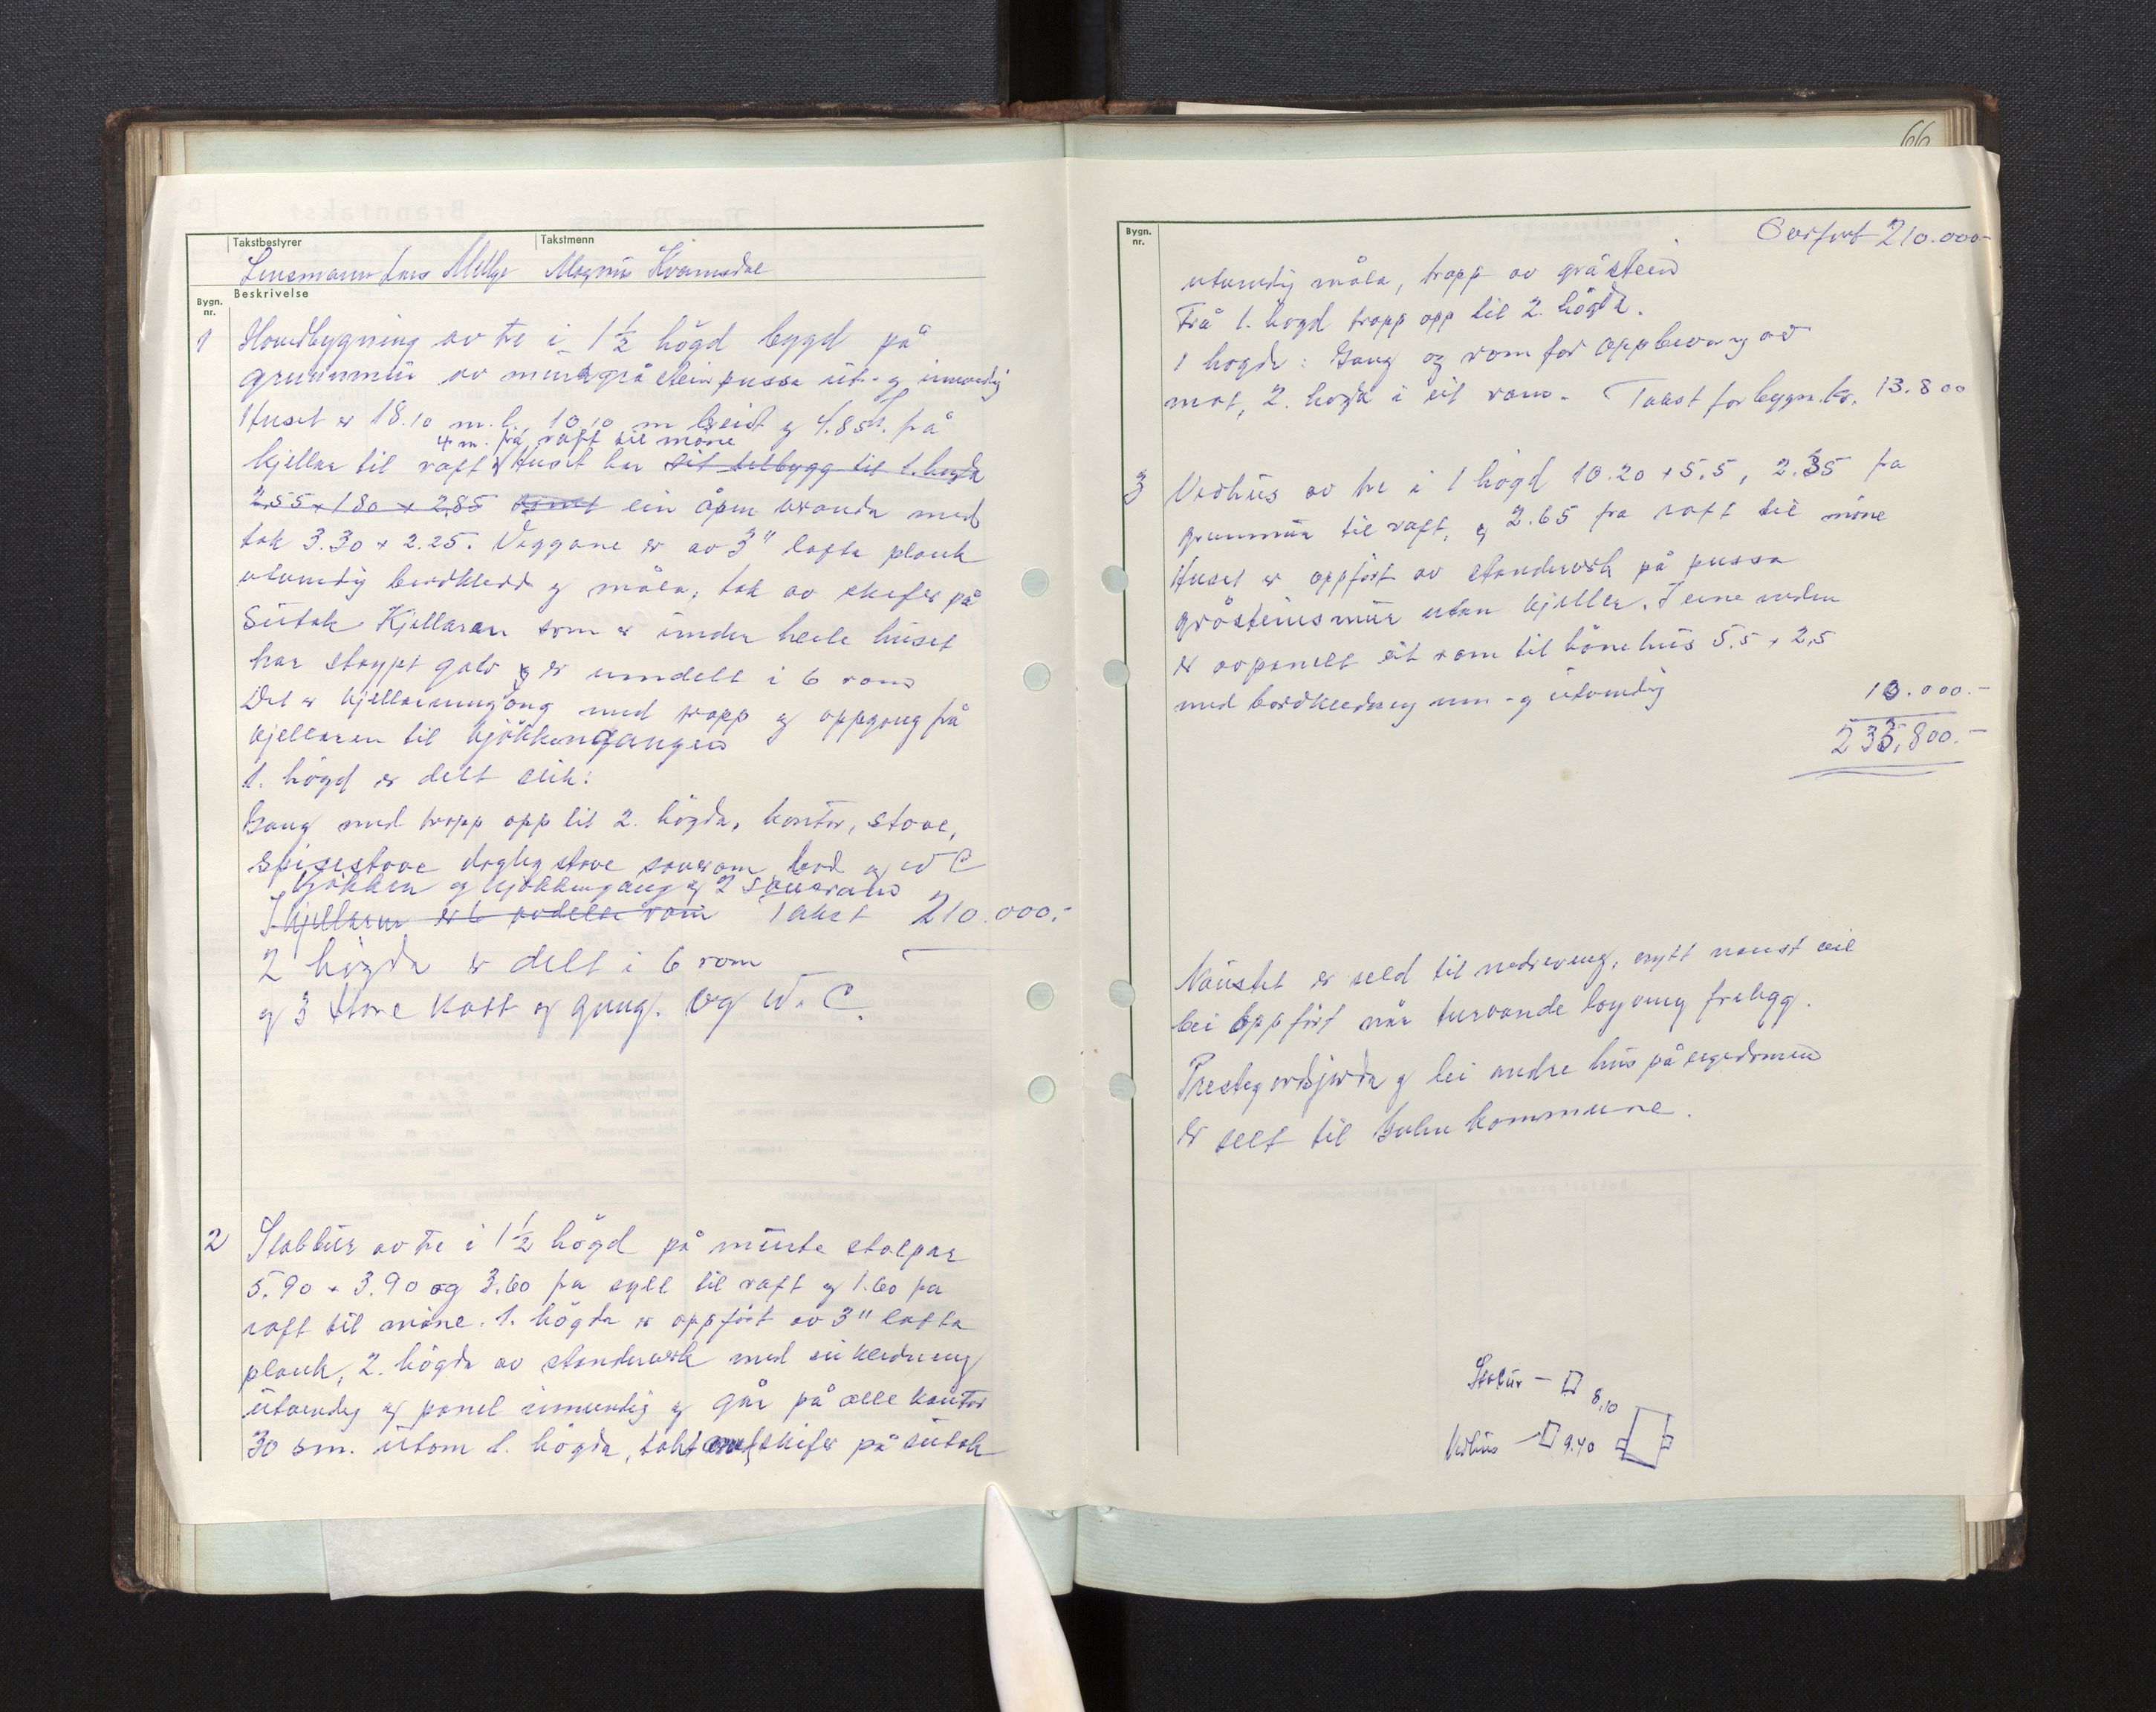 Takstbestyrer Takstmenn
Lensmann Lars Magnus Kvamsdal
Bygn. nr. Beskrivelse
1 Hovudbygning av tre i 1½ högd bygd på
grunnmur av gråstein pussa ut- og innvendig
Huset er 18.10 m. l. 10.10 m breidt og 4.85 frå
4 m. frå raft til møne
kjellar til raft Huset har eit tilbygg til 1. högda
2.55 x 1.80 x 2.85 ein åpen veranda med
tak 3.30 x 2.25. Veggane er av 3" lafta plank
utvendig bordkledd og måla, tak av skifer på
sutak Kjellaren som er under heile huset
har støypt golv og er inndelt i 6 rom
Det er kjellarinngang med tropp og oppgang frå
kjellaren til kjökkengangen
1. högd er delt slik:
Gang med tropp opp til 2. högda, kontor, stove,
spisestove daglegstove soverom, bod og W C
kjökken og kjökkengang og 2 soverom
I kjellaren er 6 avdelte rom Takst 210.000.-
2 högda er delt i 6 rom
og 3 store kott og gang. og W. C.
2 Stabbur av tre i 1½ högd på murte stolpar
5.90 x 3.90 og 3.60 fra syll til raft og 1.60 fra
raft til møne. 1. högda er oppfört av 3" lafta
plank, 2. högda av standverk med kledning
utvendig og panel innvendig og går på alle kantar
30 sm. utom 1. högda, takt skifer på sutak
66
Bygn. nr.
Overfort 210.000-
utvendig måla, tropp av gråstein
Frå 1. högd tropp opp til 2. högda.
1 högda: Gang og rom for oppbevaring av
mat, 2. högda i eit rom. Takst for bygn. kr. 13.800
3 Vedhus av tre i 1 högd 10.20 x 5.5, 2.35 fra
grunnmur til raft, og 2.65 fra raft til møne
Huset er oppfört av standverk på pussa
gråsteinsmur utan kjellar. I eine enden
er avpanelt eit rom til hönehus 5.5 x 2.5
med bordkledning inn- og utvendig
10.000.-
233.800.-
Naustet er seld til nedriving, nytt naust
bei oppfört når turvande löyving fyreligg.
Prestegardsjorda og dei andre hus på eigedomen
er selt til Gulen kommune.
Stabur — 8,10
Vedhus — 9.40